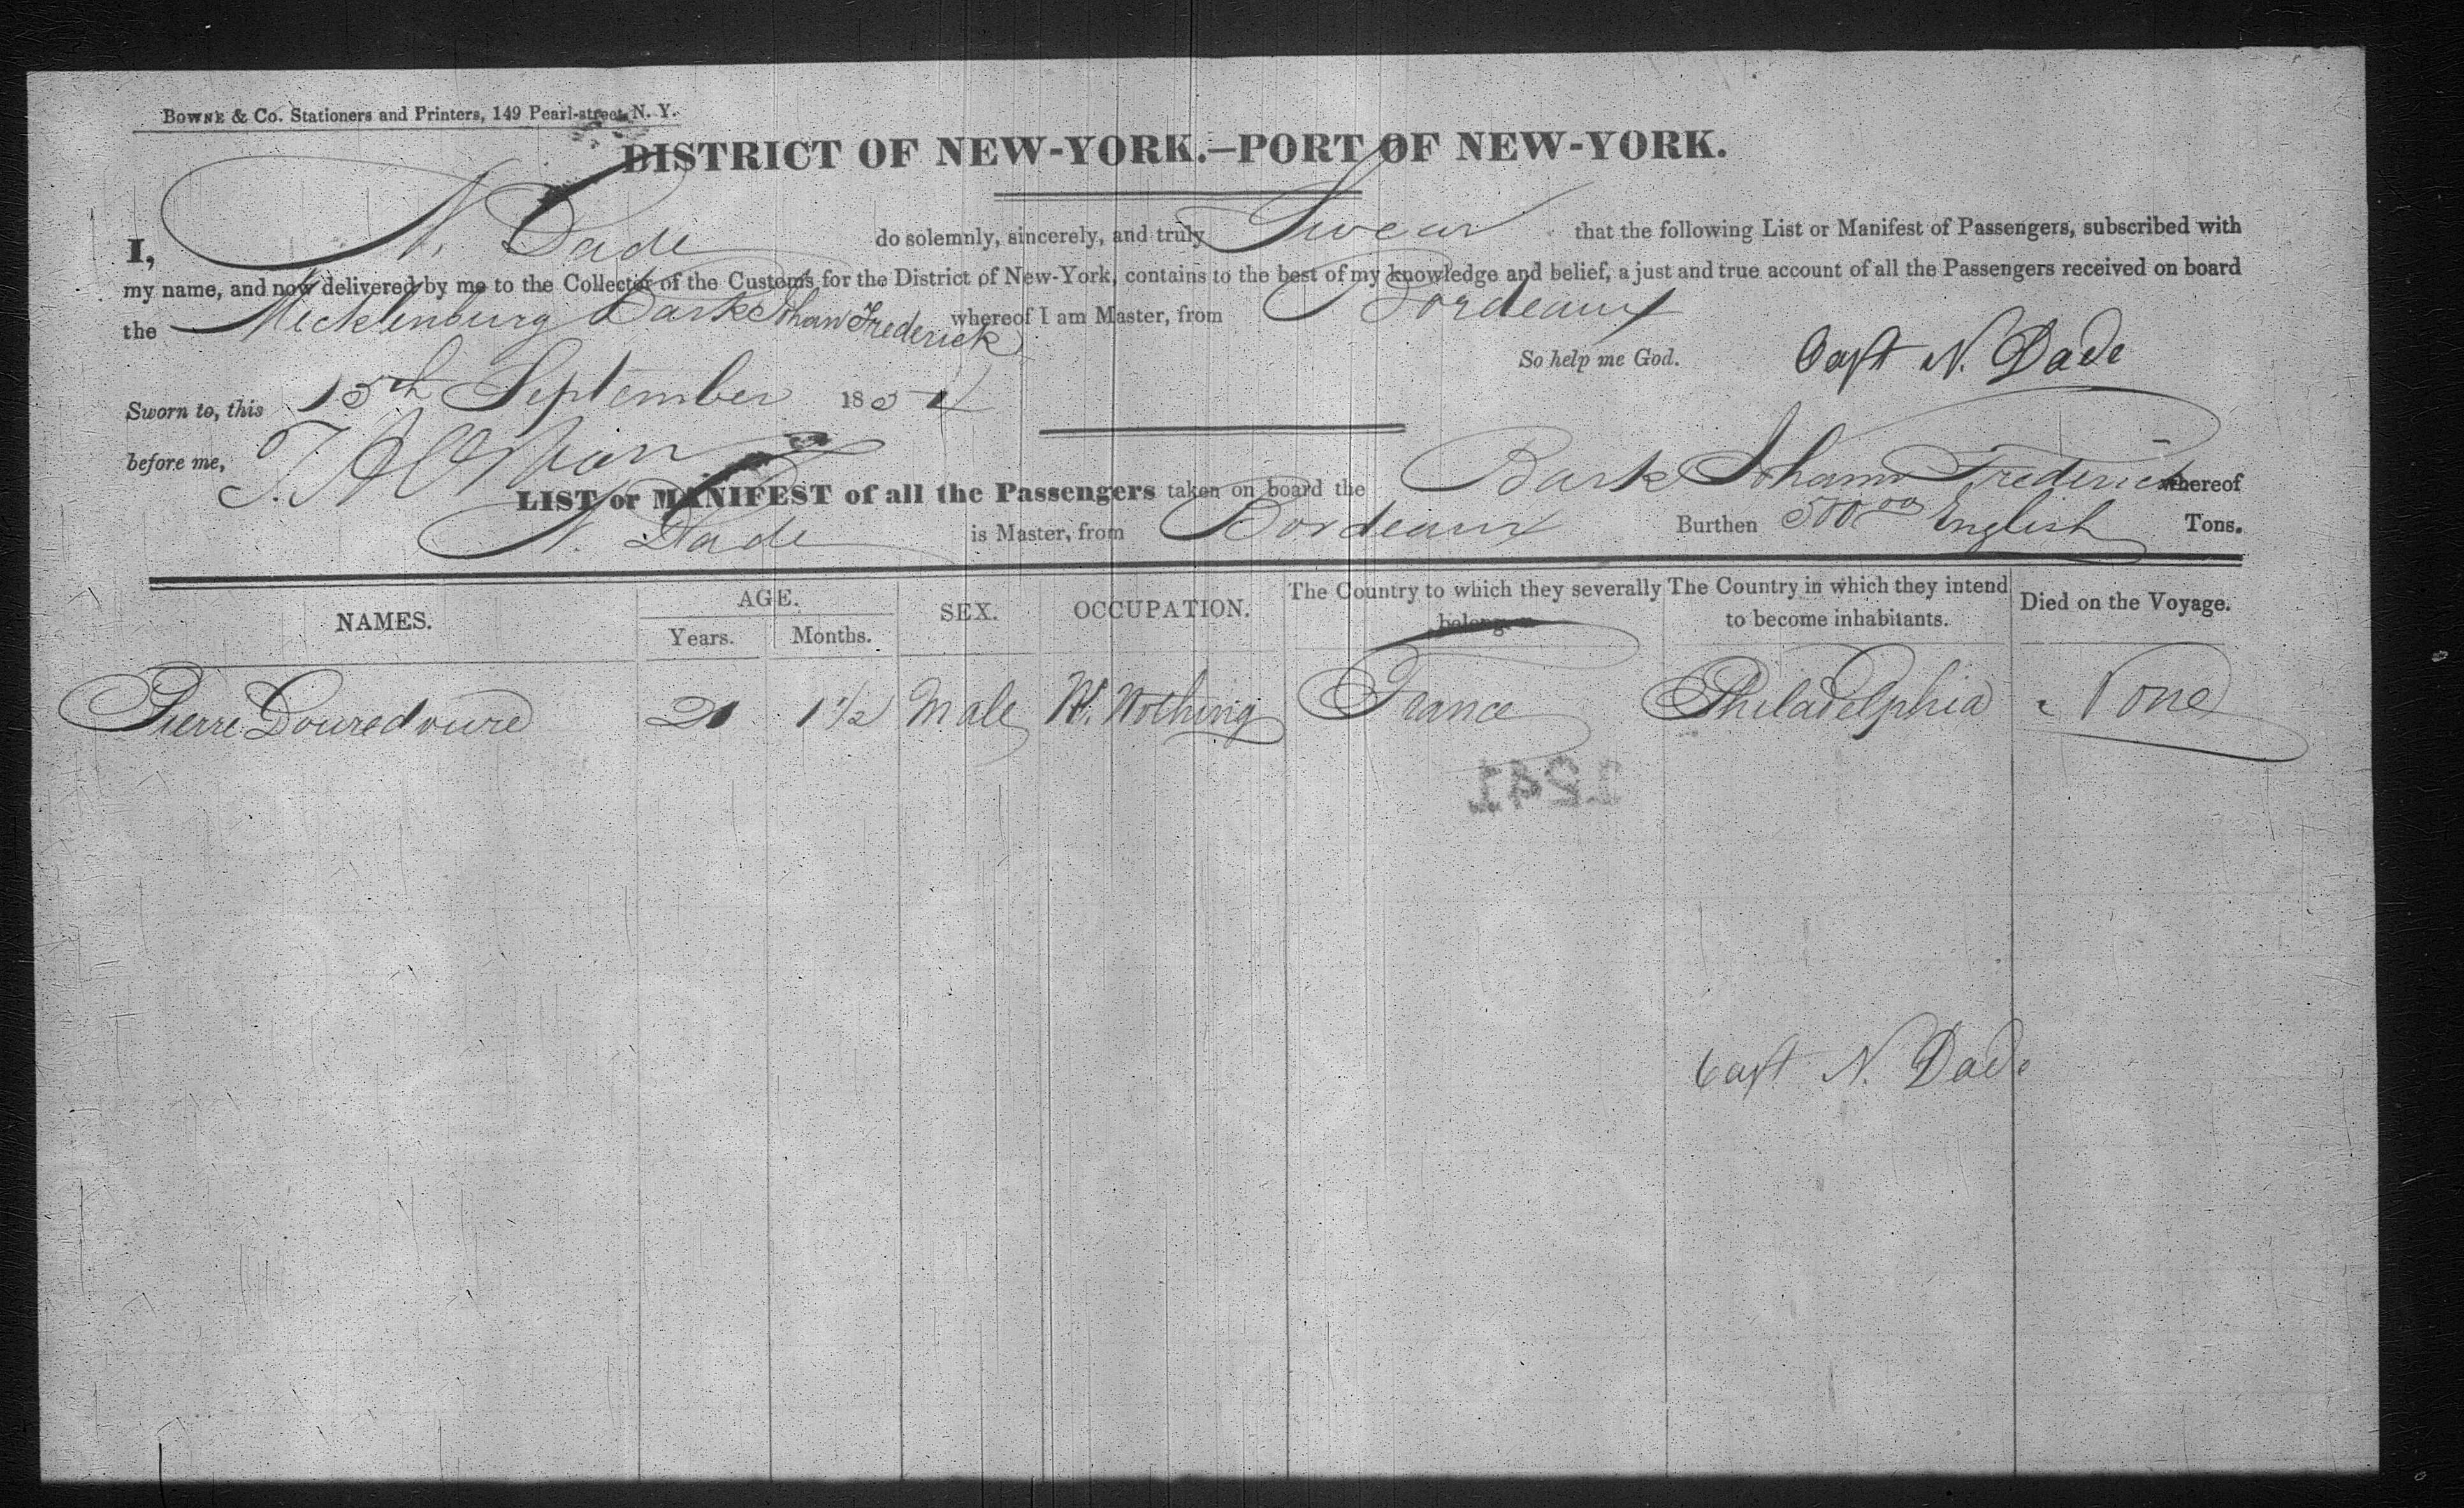 BOWNE & CO. Stationers and Printers, 149 Pearl-street, N. Y.
DISTRICT OF NEW-YORK.—PORT OF NEW-YORK.
I, N. Dade do solemnly, sincerely, and truly Swear that the following List or Manifest of Passengers, subscribed with
my name, and now delivered by me to the Collector of the Customs for the District of New-York, contains to the best of my knowledge and belief, a just and true account of all the Passengers received on board
the Mecklenburg Bark Johann Frederick whereof I am Master, from Bordeaux
So help me God. Capt N. Dade
Sworn to, this 15th September 1854
before me,
LIST or MANIFEST of all the Passengers taken on board the Bark Johann Frederick whereof
N. Dade is Master, from Bordeaux Burthen 500 00 English Tons.
NAMES. AGE. Years. Months. SEX. OCCUPATION. The Country to which they severally belong. The Country in which they intend to become inhabitants. Died on the Voyage.
Pierre 21 1 1/2 Male Nothing France Philadelphia None
1241
Capt N. Dade